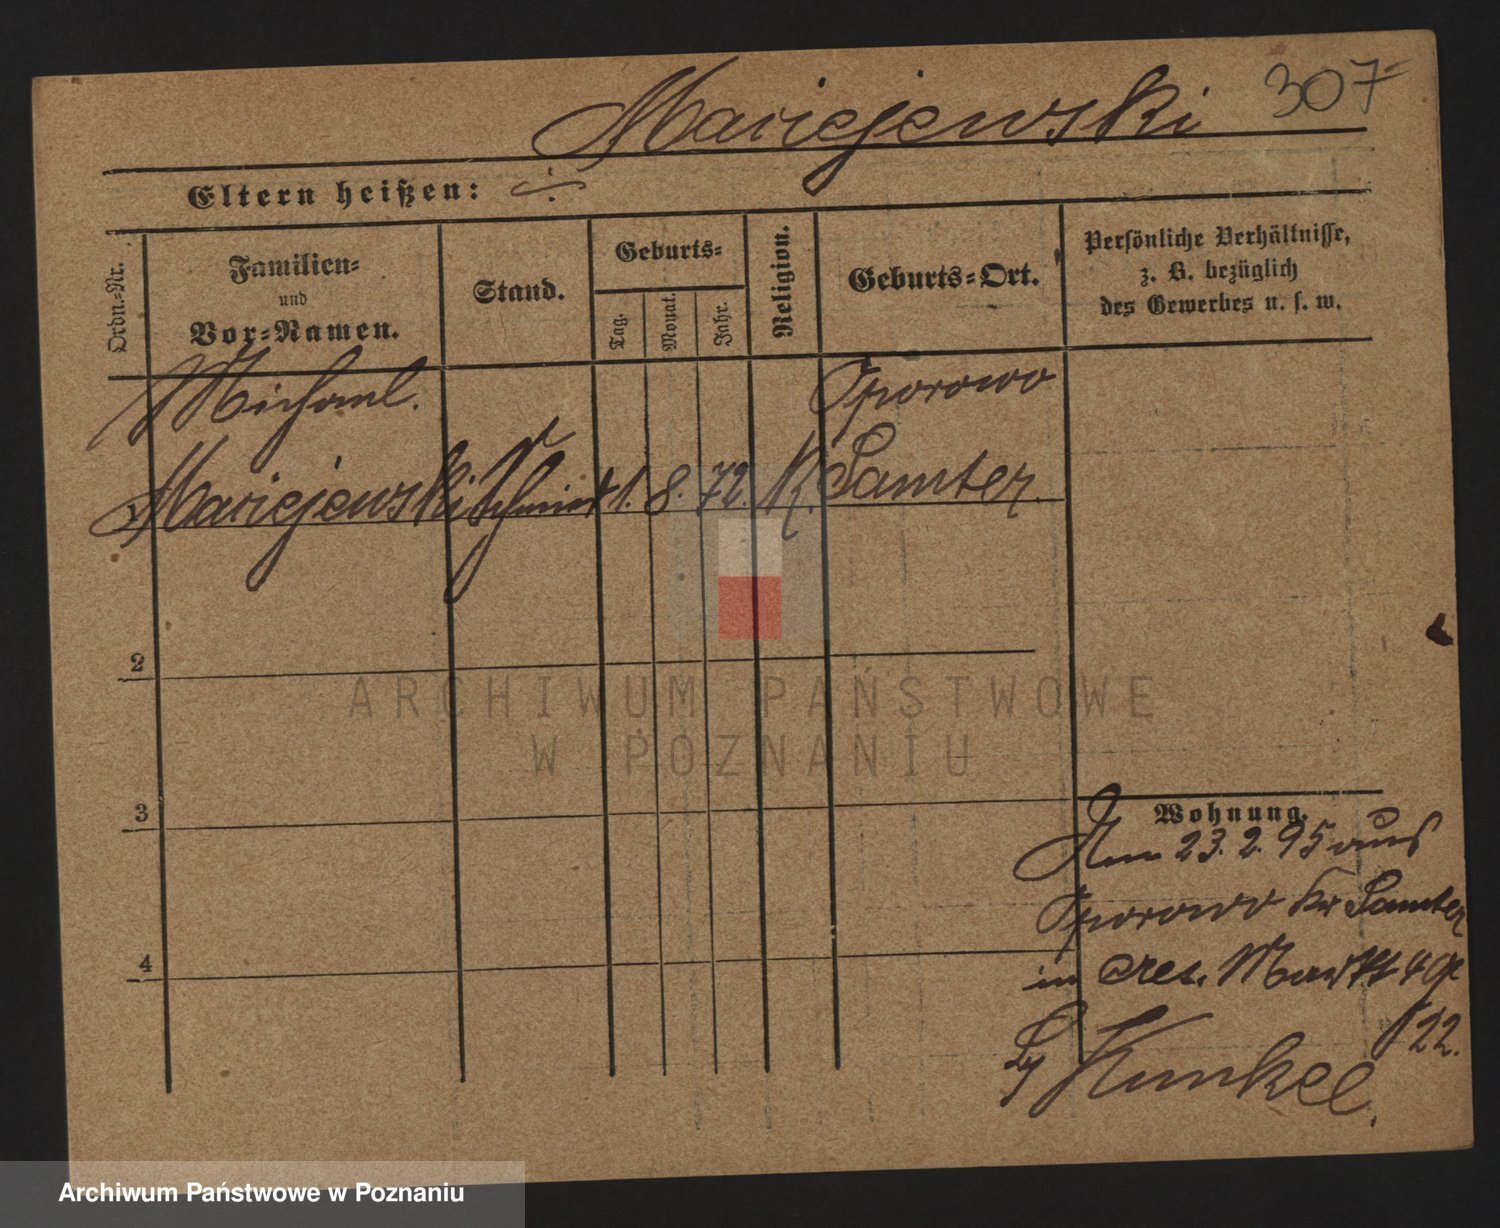 Maciejewski 307
Eltern heißen: ./.
Ordn.-Nr.
Familien-
und
Vor-Namen.
Stand.
Geburts-
Tag.
Monat.
Jahr.
Religion.
Geburts-Ort.
Persönliche Verhältnisse,
z. B. bezüglich
des Gewerbes u. s. w.
Michael. Oporowo
1 Maciejewski Schmied 1. 8. 72. K. Samter.
2
3
4
Wohnung.
Am 23. 2. 95 aus
Oporowo Kr Samter
in Markt
22.
by Kunkel.
ARCHIWUM PAŃSTWOWE
W POZNANIU
Archiwum Państwowe w Poznaniu